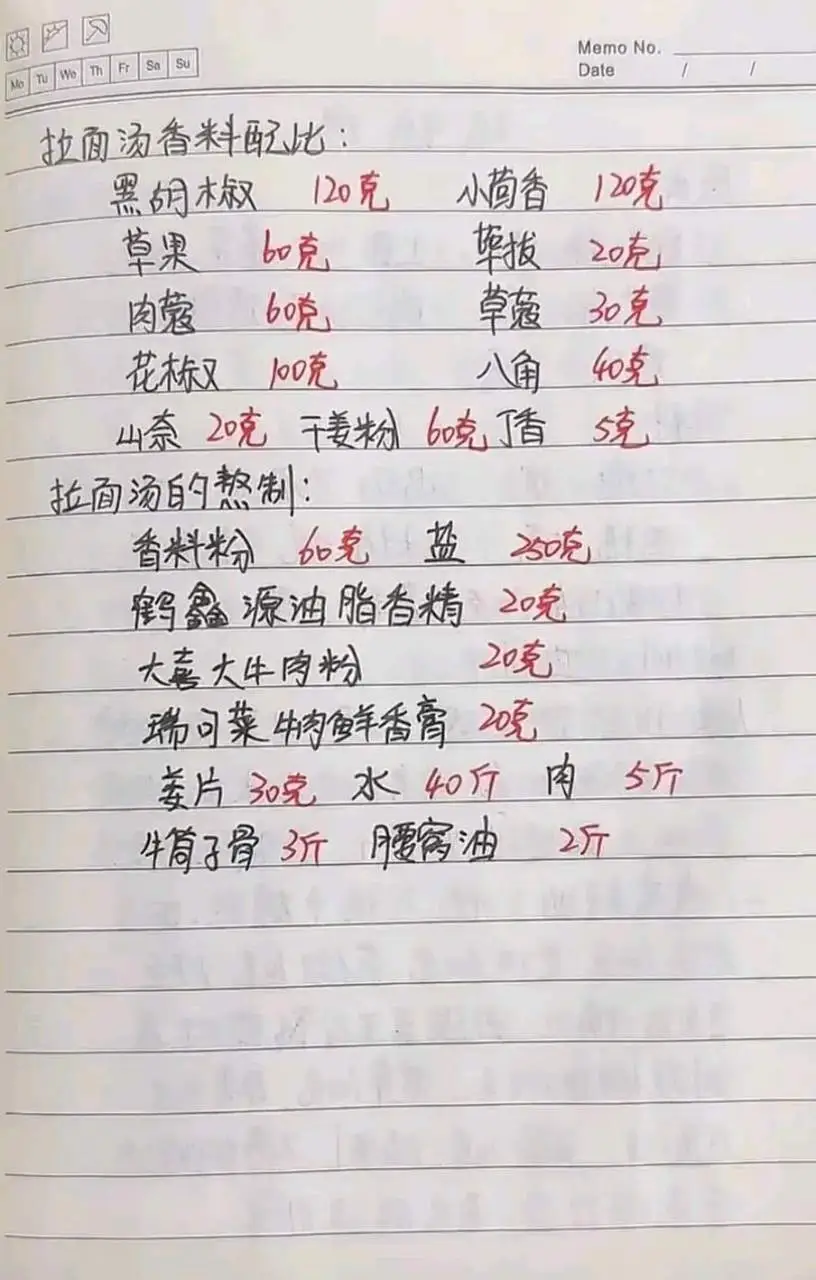 Memo No.
Mo Tu We Th Fr Sa Su
Date / /
拉面汤香料配比:
黑胡椒 120克 小茴香 120克
草果 60克 荜拔 20克
肉蔻 60克 草蔻 30克
花椒 100克 八角 40克
山奈 20克 干姜粉 60克 丁香 5克
拉面汤的熬制:
香料粉 60克 盐 250克
鹤鑫源油脂香精 20克
大喜大牛肉粉 20克
瑞可莱牛肉鲜香膏 20克
姜片 30克 水 40斤 肉 5斤
牛筒子骨 3斤 腰窝油 2斤